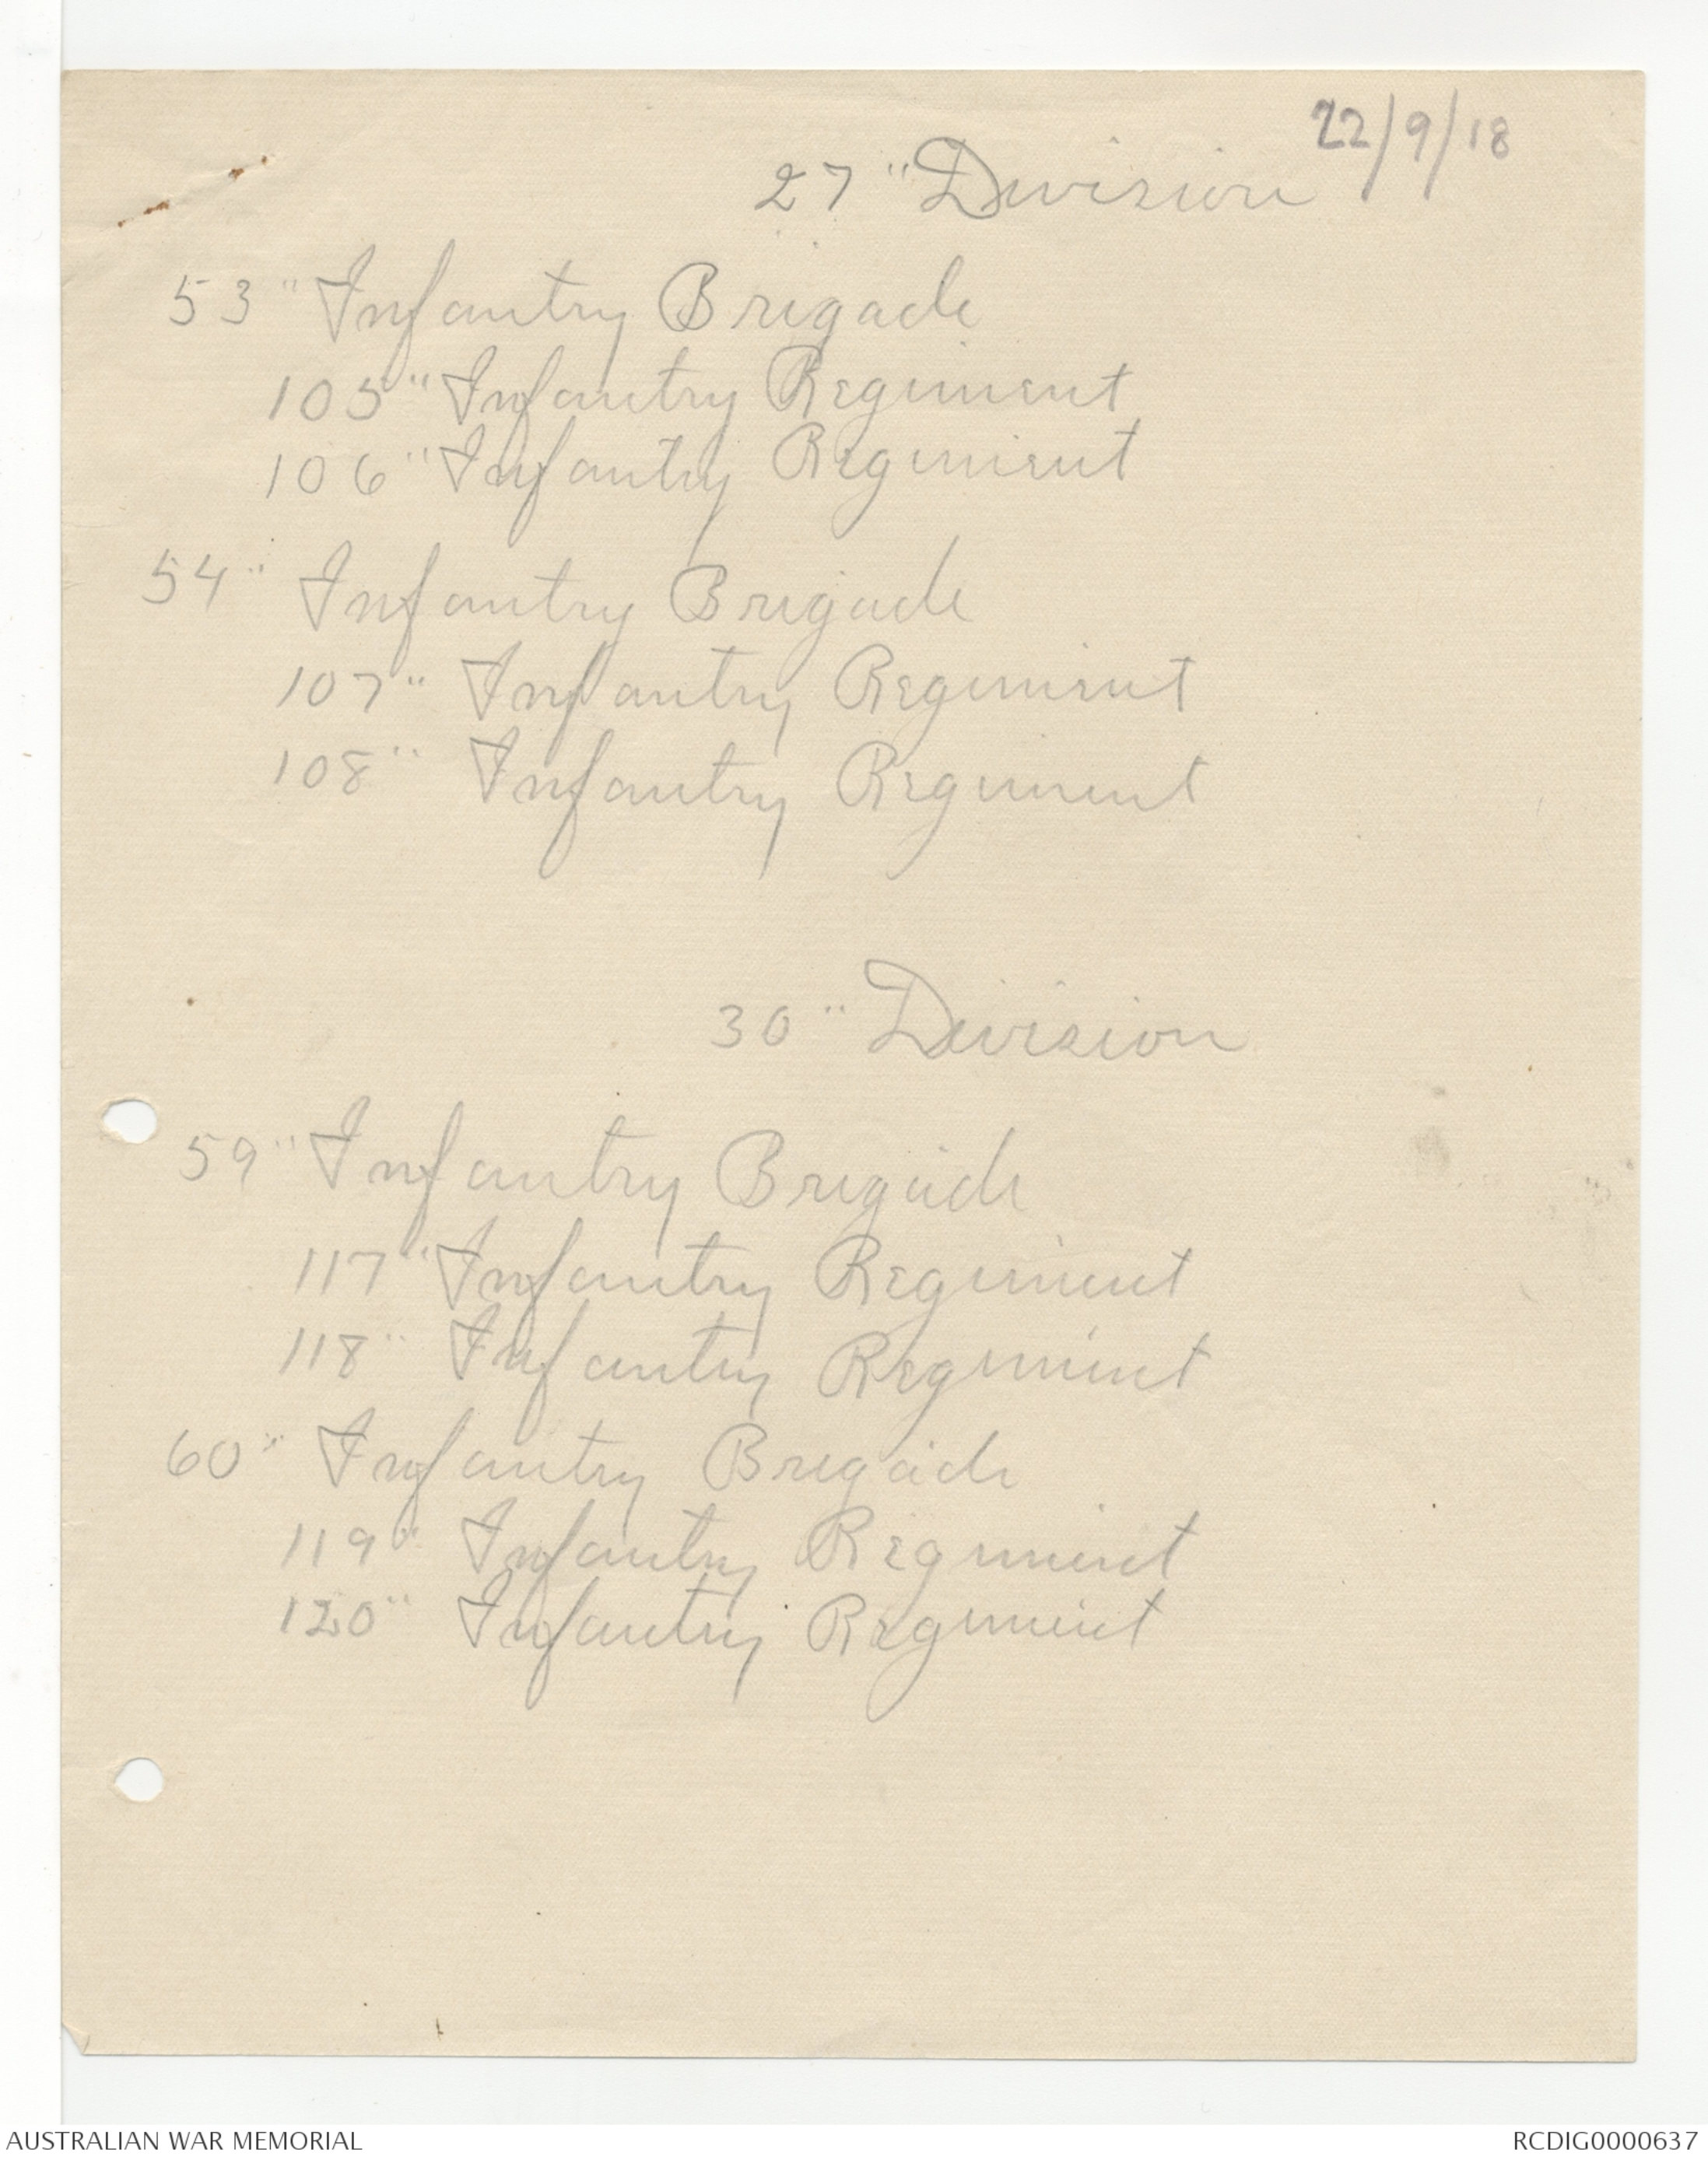 22/9/18
27" Division
53" Infantry Brigade
105" Infantry Regiment
106" Infantry Regiment
54" Infantry Brigade
107" Infantry Regiment
108" Infantry Regiment
30" Division
59" Infantry Brigade
117" Infantry Regiment
118" Infantry Regiment
60" Infantry Brigade
119" Infantry Regiment
120" Infantry Regiment
AUSTRALIAN WAR MEMORIAL
RCDIG0000637